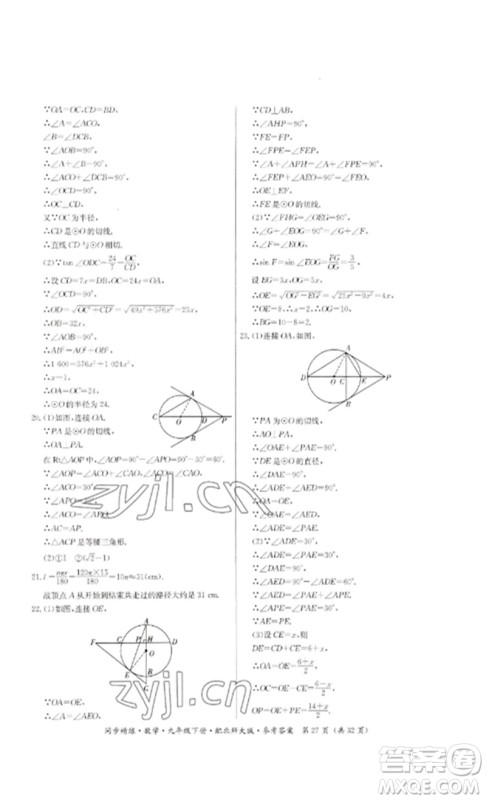 ∵OA=OC,CD=BD,
∴∠A=∠ACO,
∠B=∠DCB.
∵∠AOB=90°,
∴∠A+∠B=90°.
∴∠ACO+∠DCB=90°.
∴∠OCD=90°.
∴OC⊥CD.
又∵OC为半径,
∴CD是⊙O的切线.
∴直线CD与⊙O相切.
(2)∵tan∠ODC=24/7=OC/CD,
∴设CD=7x=DB,OC=24x=OA.
∵∠OCD=90°,
∴OD=√(OC²+CD²)=√(49x²+576x²)=25x.
∴OB=32x.
∵∠AOB=90°,
∴AB²=AO²+OB².
∴1 600=576x²+1 024x².
∴x=1.
∴OA=OC=24.
∴⊙O的半径为24.
20.(1)如图,连接OA.
∵PA是⊙O的切线,
∴OA⊥PA.
在Rt△AOP中,∠AOP=90°-∠APO=90°-30°=60°.
∵∠AOP=∠ACO+∠CAO,∠ACO=∠CAO,
∴∠ACO=30°.
∵∠APO=30°,
∴∠ACO=∠APO.
∴AC=AP.
∴△ACP是等腰三角形.
(2)①1 ②(√2-1)
21.l=nπr/180=120π×15/180=10π≈31(cm).
故顶点A从开始到结束共走过的路径大约是31 cm.
22.(1)如图,连接OE,
A
F C P H D
O
E
B
G
∵OA=OE,
∴∠A=∠AEO.
∵CD⊥AB,
∴∠AHP=90°.
∵FE=FP,
∴∠FPE=∠FEP.
∵∠A+∠APH=∠A+∠FPE=90°,
∴∠FEP+∠AEO=90°=∠FEO.
∴OE⊥EF.
∴FE是⊙O的切线.
(2)∵∠FHG=∠OEG=90°,
∴∠G+∠EOG=90°=∠G+∠F.
∴∠F=∠EOG.
∴sin F=sin∠EOG=EG/OG=3/5.
设EG=3x,OG=5x,
∴OE=√(OG²-EG²)=√(25x²-9x²)=4x.
∵OE=8,∴x=2.
∴OG=10.
∴BG=10-8=2.
23.(1)连接OA,如图.
A
D O C E P
B
∵PA为⊙O的切线,
∴AO⊥PA.
∴∠OAE+∠PAE=90°.
∵DE是⊙O的直径,
∴∠DAE=90°.
∴∠ADE+∠AED=90°.
∵OA=OE,
∴∠OAE=∠AED.
∴∠ADE=∠PAE.
(2)∵∠ADE=30°,
∴∠PAE=∠ADE=30°.
∵∠DAE=90°,
∴∠AED=90°-∠ADE=60°.
∵∠AED=∠PAE+∠APE,
∴∠APE=∠PAE=30°.
∴AE=PE.
(3)设CE=x,
则DE=CD+CE=6+x,
∴OA=OE=(6+x)/2.
∴OC=OE-CE=(6+x)/2-x=(6-x)/2,
OP=OE+PE=(6+x)/2+4=(14+x)/2.
同步精练·数学·九年级下册·配北师大版·参考答案 第27页(共32页)
zyjl.cn
zyjl.cn